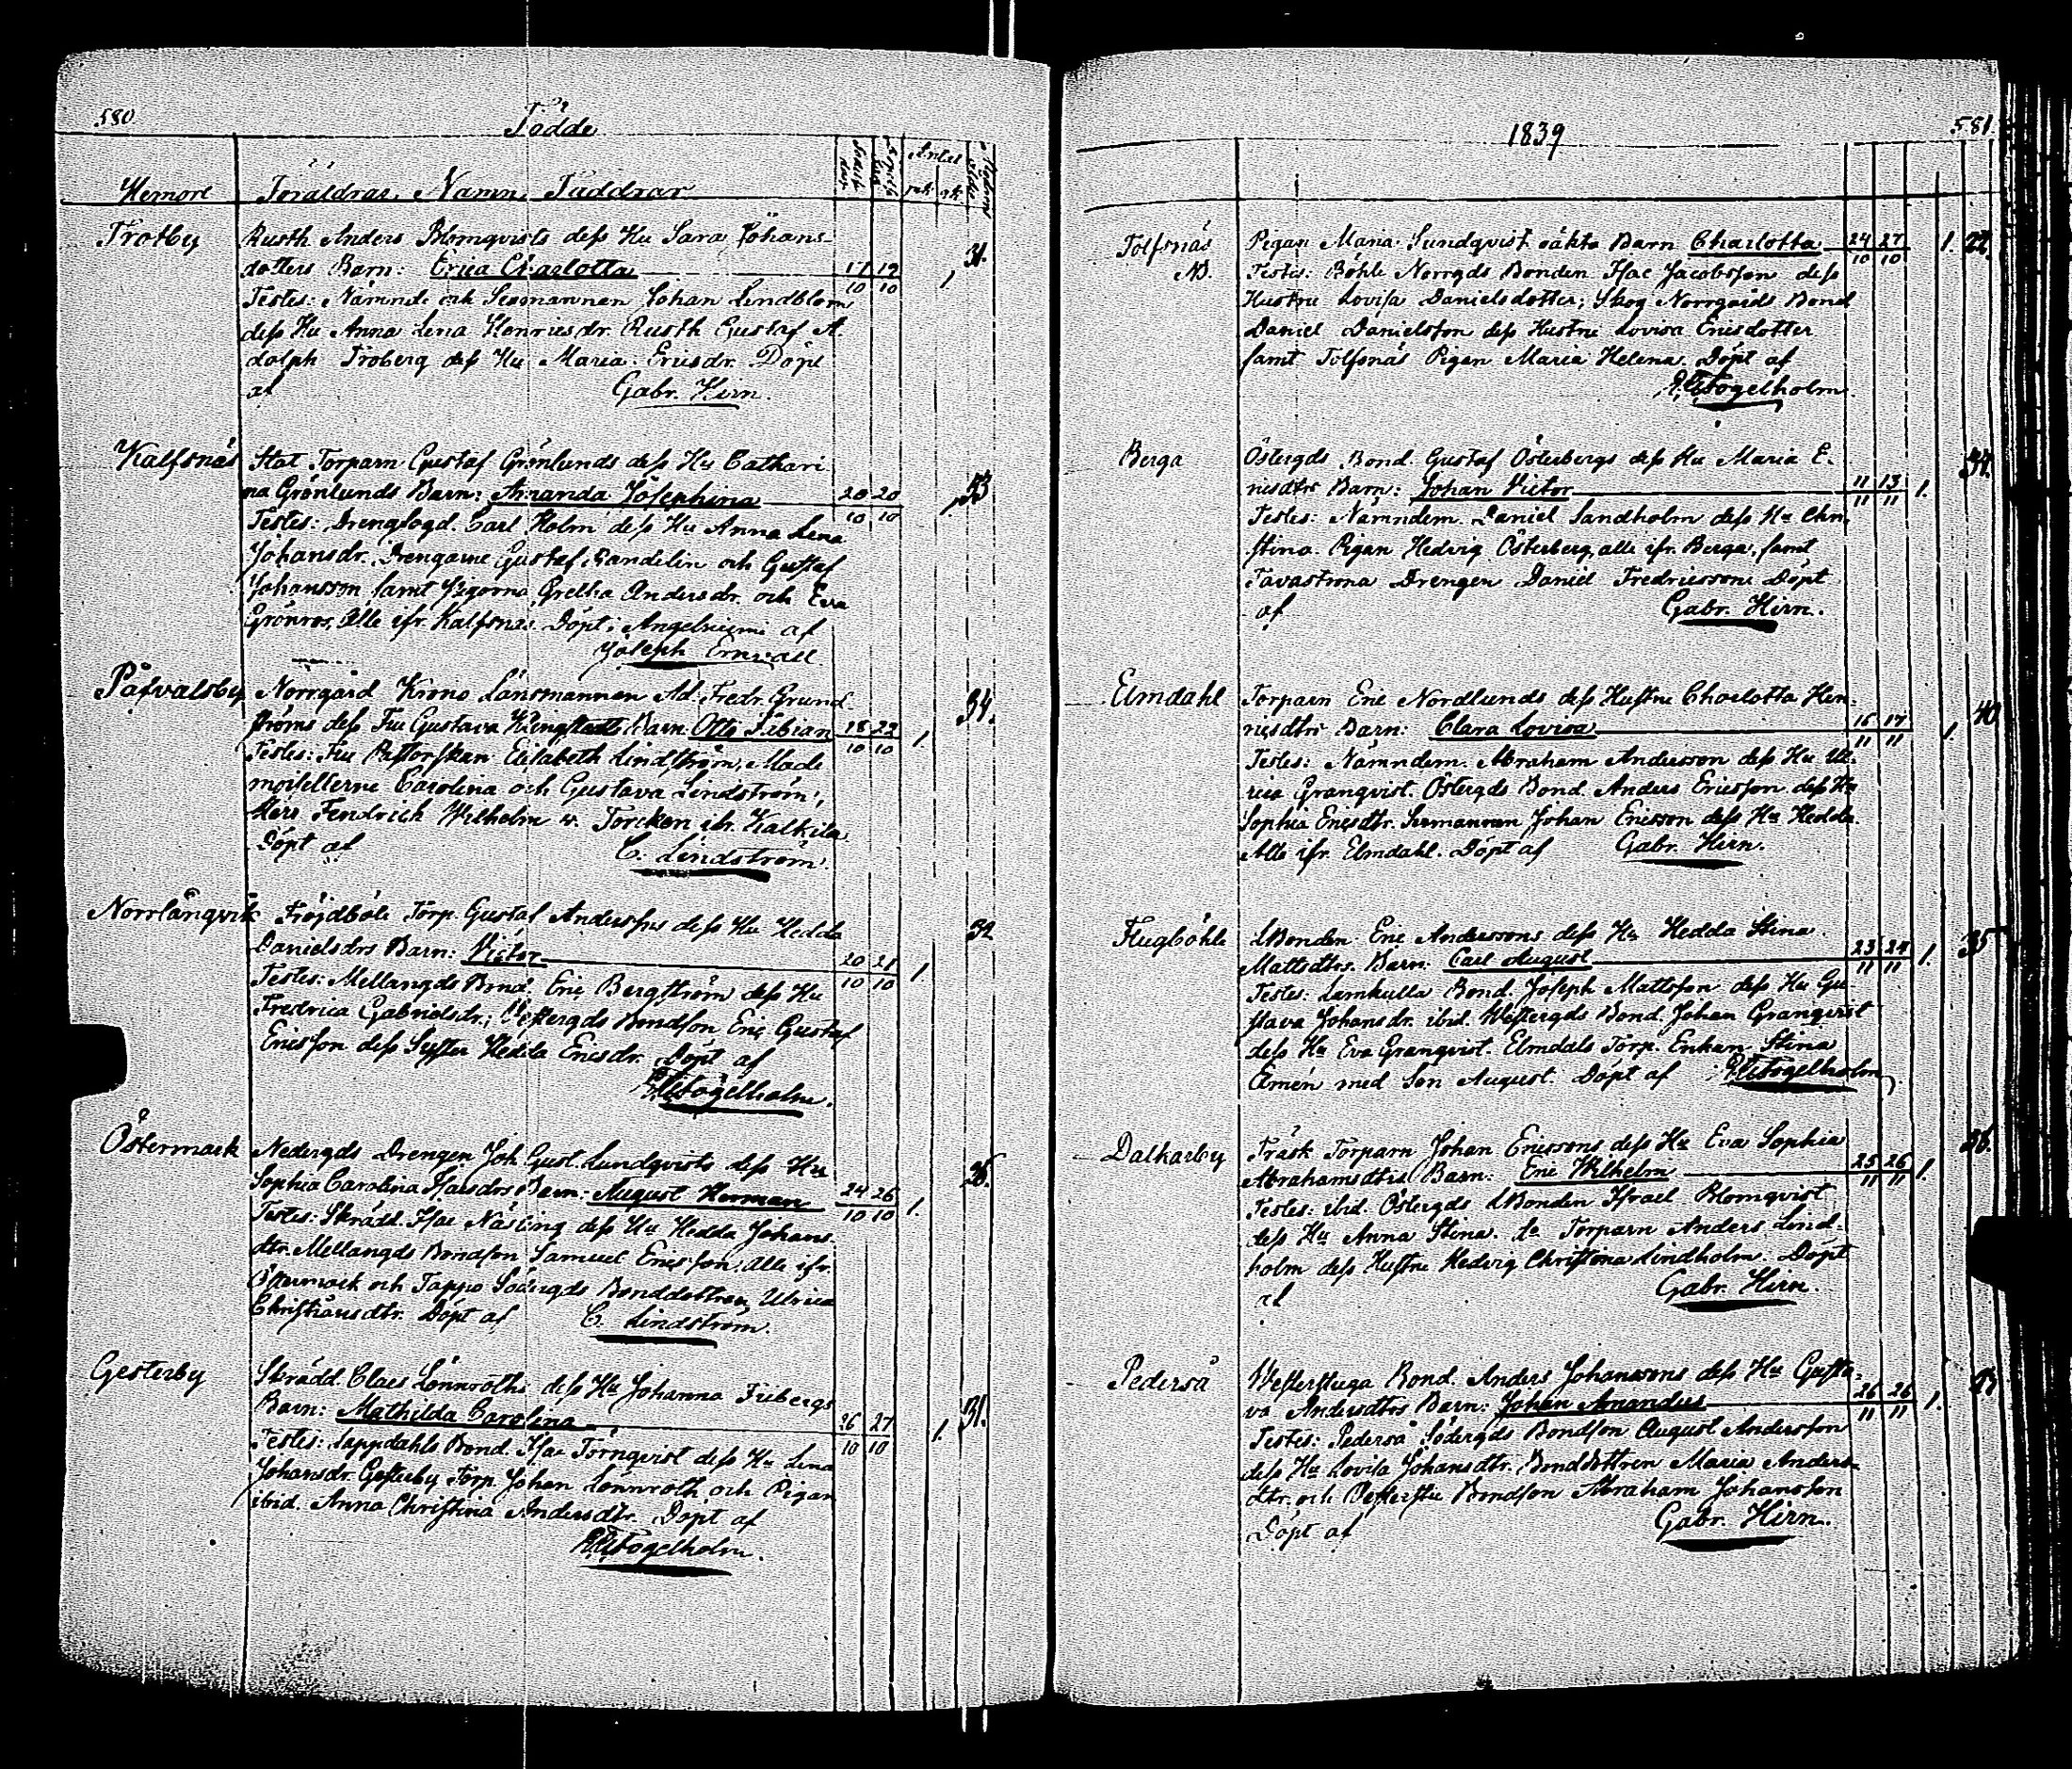 580
Födde
Hemort Föräldrar, Namn, Faddrar
Froby
Rusth Anders Blomqvists deſs Hu Sara Johans-
dotters Barn: Erica Charlotta 17/10 19/10 1 31.
Testes: Nämnde och Sexmannen Johan Lindblom
deſs Hu Anna Lena Henricsdr. Rusth Gustaf A
dolph Froberg deſs Hu Maria Ericsdr. Döpt
af Gabr. Hirn.
Kalfsnäs
Stat Torparn Gustaf Grönlunds deſs Hu Cathari
na Grönlunds Barn: Amanda Josephina 20/10 20/10 1 33
Testes: Drengfogd. Carl Holm deſs Hu Anna Lena
Johansdr. Drengarne Gustaf Sandelin och Gustaf
Johansson samt Pigorna Gretha Andersdr. och Eva
Grönros, Alle ifr. Kalfsnäs. Döpt i Angelniemi af
Joseph Ernvall.
Påfvalsby
Norrgård Krono Länsmannen Ad. Fredr. Grund-
ströms deſs Fru Gustava Barn: Otto Fabian 18/10 22/10 1. 34.
Testes: Fru Pastorskan Elisabeth Lindström, Made
moisellerne Carolina och Gustava Lindström,
Herr Fendrich Wilhelm v. Torcken ifr. Kalkila.
Döpt af C. Lindström.
Norrlångvik
Fröjdböle Torp. Gustaf Anderſsons deſs Hu Hedda
Danielsdrs Barn: Victor 20/10 21/10 1. 32
Testes: Mellangds Bond. Eric Bergström deſs Hu
Fredrica Gabrielsdr.; Westergds Bondſon Eric Gustaf
Ericſson deſs Syster Hedda Ericsdr. Döpt af
Fogelholm.
Östermark
Nedergds Drengen Joh. Gust. Lundqvists deſs Hu
Sophia Carolina Isacsdrs Barn: August Herman 24/10 26/10 1. 26.
Testes: Skrädd. Isac Näsling deſs Hu Hedda Johans
dtr. Mellangds Bondſon Samuel Ericſson, Alle ifr.
Östermark och Tappo Södergds Bonddottren Ulrica
Christiansdtr. Döpt af C. Lindström.
Gesterby
Skrädd. Claes Lönnroths deſs Hu Johanna Fribergs
Barn: Mathilda Carolina 26/10 27/10 1. 31.
Testes: Lappdahls Bond. Isac Törnqvist deſs Hu Lena
Johansdr. Gesterby Torp. Johan Lönnroth och Pigan
ibid. Anna Christina Andersdtr. Döpt af
Fogelholm.
1839
581.
Tolfsnäs
Pigan Maria Sundqvist oäkta Barn Charlotta 24/10 27/10 1. 22.
Testes: Böhle Norrgds Bonden Isac Jacobsſon deſs
Hustru Lovisa Danielsdotter; Skog Norrgårds Bond
Daniel Danielsſon deſs Hustru Lovisa Ericsdotter
samt Tolfsnäs Pigan Maria Helena. Döpt af
Fogelholm.
Berga
Östergds Bond. Gustaf Österbergs deſs Hu Maria E-
ricsdtrs Barn: Johan Victor 11/11 13/11 1. 34.
Testes: Nämndem. Daniel Sandholm deſs Hu Chri
stina. Pigan Hedvig Österberg, alle ifr. Berga, samt
Tavastrona Drengen Daniel Fredricsson. Döpt
af Gabr. Hirn.
Elmdahl
Torparn Eric Nordlunds deſs Hustru Charlotta Hen-
ricsdtrs Barn: Clara Lovisa 15/11 17/11 1. 40
Testes: Nämndem. Abraham Andersson deſs Hu Ul-
rica Granqvist. Östergds Bond. Anders Ericsſon deſs Hu
Sophia Ericsdtr. Sexmannen Johan Ericsson deſs Hu Hedda
Alle ifr. Elmdahl. Döpt af Gabr. Hirn.
Flugböhle
LBonden Eric Anderssons deſs Hu Hedda Stina
Mattsdtrs. Barn: Carl August 23/11 24/11 1. 35
Testes: Lamkulla Bond. Joseph Mattsſon deſs Hu Gu
stava Johansdr. ibid. Westergds Bond. Johan Granqvist
deſs Hu Eva Granqvist. Elmdals Torp. Enkan Stina
Amén med Son August. Döpt af Fogelholm
Dalkarby
Träsk Torparn Johan Ericssons deſs Hu Eva Sophia
Abrahamsdtrs Barn: Eric Wilhelm 25/11 26/11 1. 36.
Testes: ibid. Östergds LBonden Israel Blomqvist
deſs Hu Anna Stina. to Torparn Anders Lind-
holm deſs Hustru Hedvig Christina Lindholm. Döpt
af Gabr. Hirn.
Pederså
Westerstuga Bond. Anders Johanssons deſs Hu Gusta-
va Andersdtrs Barn: Johan Amandus 26/11 26/11 1.
Testes: Pederså Södergds Bondſon August Andersſon
deſs Hu Lovisa Johansdtr. Bonddottren Maria Anders-
dtr. och Bondſon Abraham Johansſon
Döpt af Gabr. Hirn.